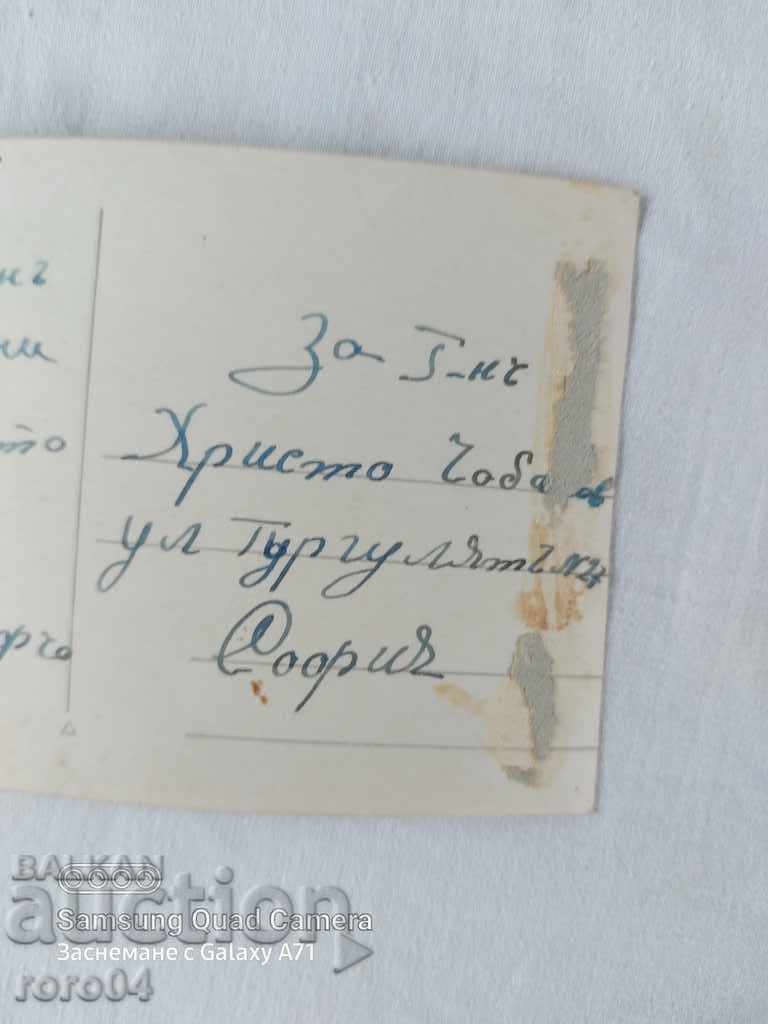 нъ
ии
то
За Г-нъ
Христо Чобанов
ул Гургулятъ № 24
София
рчо
BALKAN
auction
Samsung Quad Camera
Заснемане с Galaxy A71
roro04